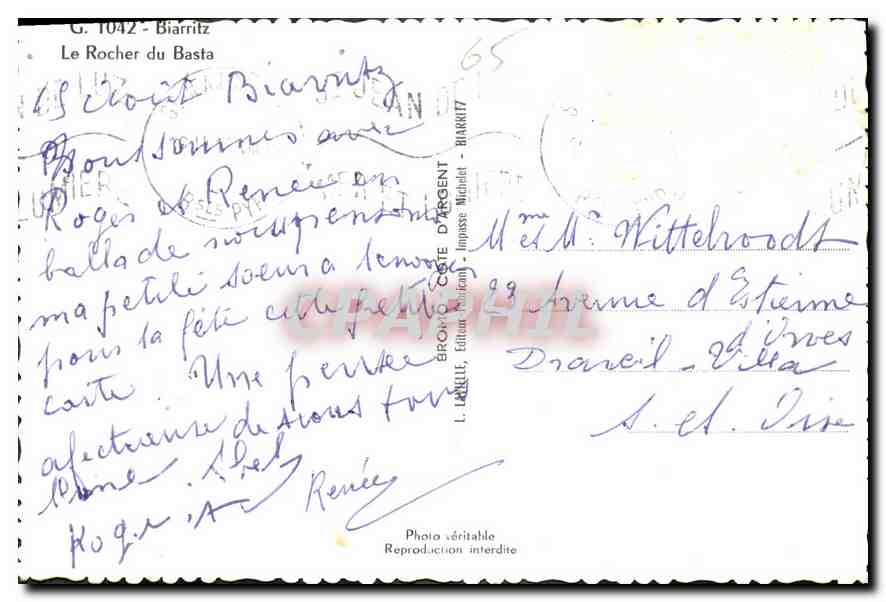 G. 1042 - Biarritz
Le Rocher du Basta
65
15 Août Biarritz
Nous sommes avec
Roger et Renée en
ballade nous pensons
ma petite soeur a t'envoyer
pour ta fête cette petite
carte. Une pensée
afectueuse de nous tous
Roger
Renée
BROMO COTE D'ARGENT
L. LABELLE, Editeur - Impasse Michelet - BIARRITZ
Mme et Mr. Wittebroodt
29 Avenue d'Estienne
d'Orves
Draveil - Villa
S. et. Oise
CPAPHIL
Photo véritable
Reproduction interdite